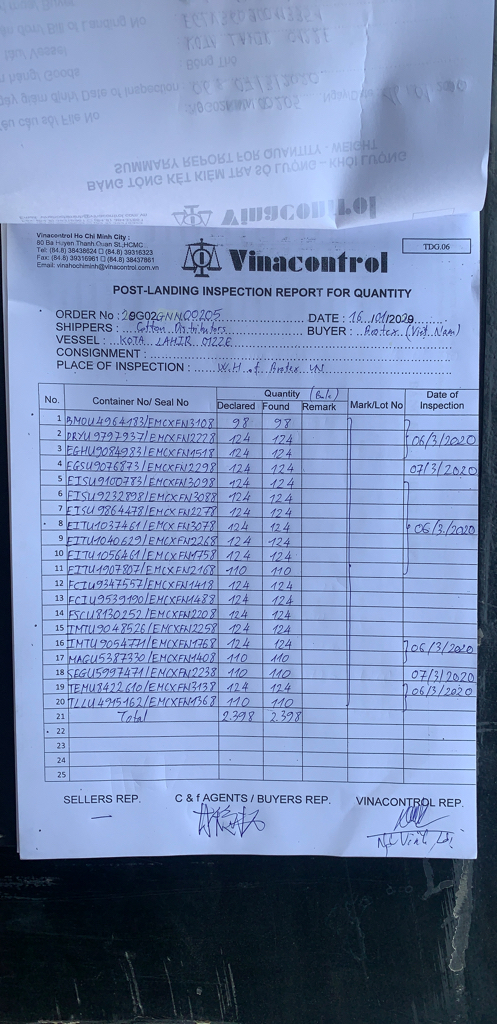 BẢNG TỔNG KẾT KIỂM TRA SỐ LƯỢNG - KHỐI LƯỢNG
SUMMARY REPORT FOR QUANTITY - WEIGHT
Vinacontrol Ho Chi Minh City :
80 Ba Huyen Thanh Quan St.,HCMC
Tel: (84.8) 38438624 □ (84.8) 39316323
Fax: (84.8) 39316961 □ (84.8) 38437861
Email: vinahochiminh@vinacontrol.com.vn
Vinacontrol
TDG.06
POST-LANDING INSPECTION REPORT FOR QUANTITY
ORDER No : 20G02GNN00205 DATE : 16/01/2020
SHIPPERS : Cotton Distributors BUYER : Brotex (Viet Nam)
VESSEL : KOTA LAHIR 022E
CONSIGNMENT :
PLACE OF INSPECTION : W.H of Brotex VN
No. Container No/ Seal No Quantity (Bale) Mark/Lot No Date of Inspection
Declared Found Remark
1 BMOU4964183/EMCXFN3108 98 98
2 DRYU9797937/EMCXFN2228 124 124 06/3/2020
3 EGHU9084983/EMCXFN1518 124 124
4 EGSU9076873/EMCXFN2298 124 124 07/3/2020
5 EISU9100783/EMCXFN3098 124 124
6 EISU9232898/EMCXFN3088 124 124
7 EISU9864478/EMCXFN2278 124 124
8 EITU1037461/EMCXFN3078 124 124 06/3/2020
9 EITU1040629/EMCXFN2268 124 124
10 EITU1056461/EMCXFN1758 124 124
11 EITU1907807/EMCXFN2168 110 110
12 FCIU9347557/EMCXFN1418 124 124
13 FCIU9539190/EMCXFN1488 124 124
14 FSCU8130252/EMCXFN2208 124 124
15 IMTU9048526/EMCXFN2258 124 124
16 IMTU9054771/EMCXFN1768 124 124 06/3/2020
17 MAGU5387330/EMCXFN1408 110 110
18 SEGU5997471/EMCXFN2238 110 110 07/3/2020
19 TEMU8422610/EMCXFN3138 124 124 06/3/2020
20 TLLU4915162/EMCXFN1368 110 110
21 Total 2.398 2.398
22
23
24
25
SELLERS REP. C & f AGENTS / BUYERS REP. VINACONTROL REP.